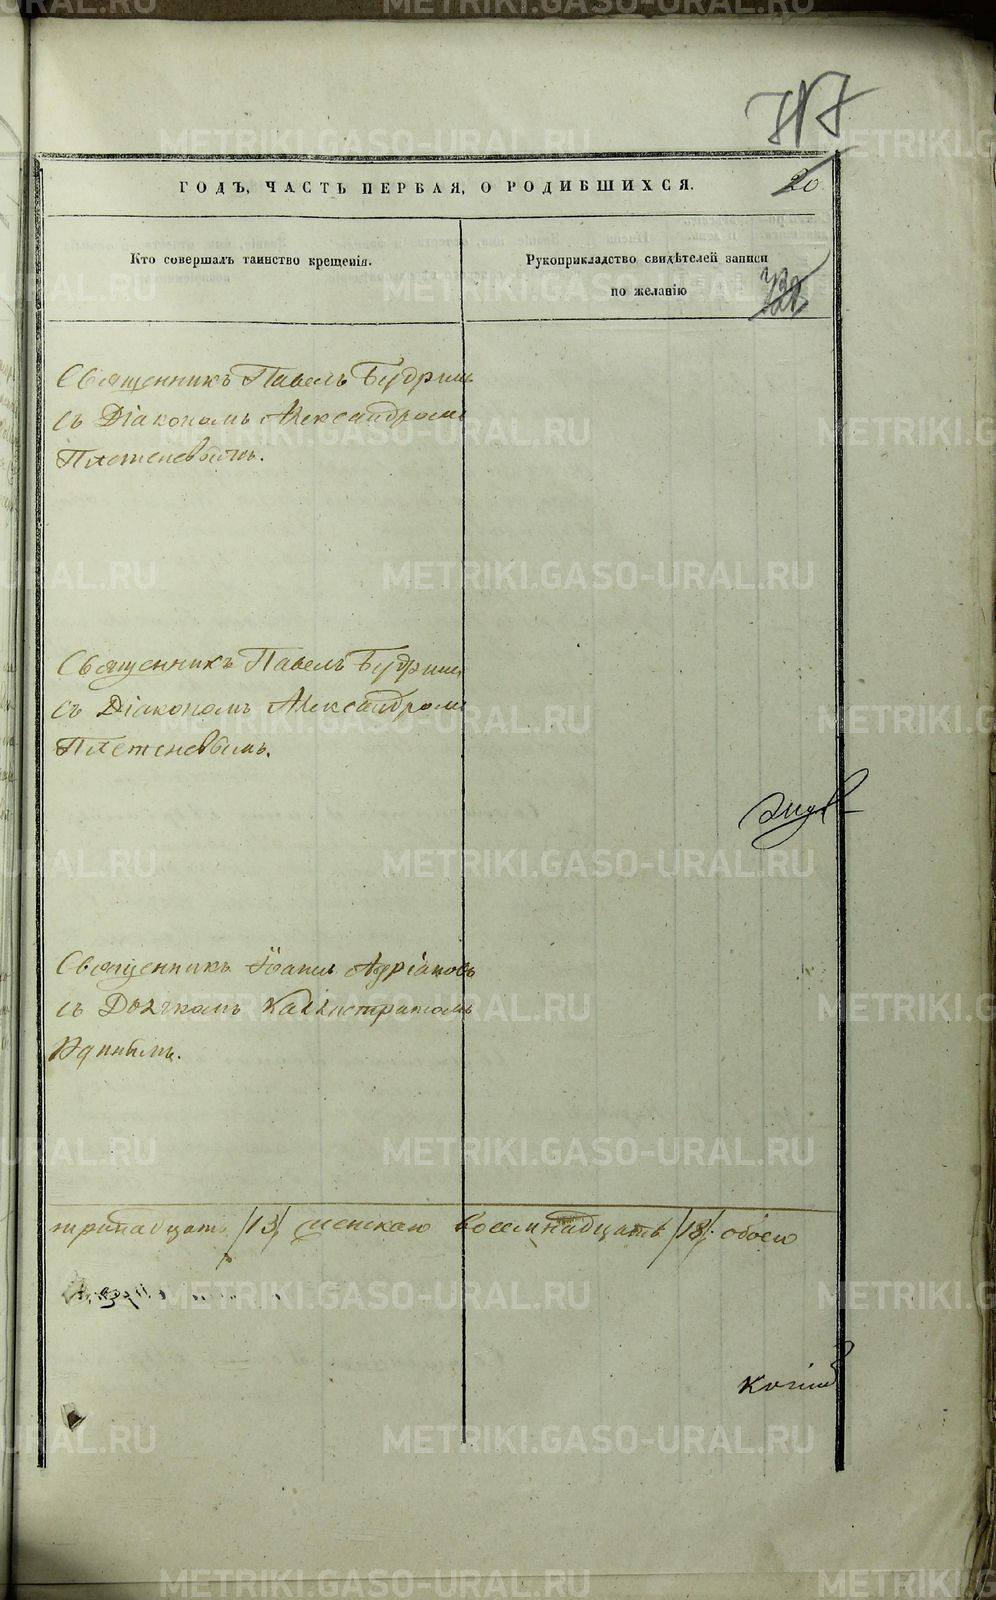 ГОДЪ, ЧАСТЬ ПЕРВАЯ, О РОДИВШИХСЯ.
20
Кто совершалъ таинство крещенія.
Рукоприкладство свидѣтелей записи
по желанію
Священникъ Павелъ Будринъ
съ Діакономъ Александромъ
Плетеневымъ.
Священникъ Павелъ Будринъ
съ Діакономъ Александромъ
Плетеневымъ.
Священникъ Іоаннъ Адріановъ
съ Дьячкомъ Каллистратомъ
тринадцать /13/ женскаго восемнадцать /18/. обоего
METRIKI.GASO-URAL.RU